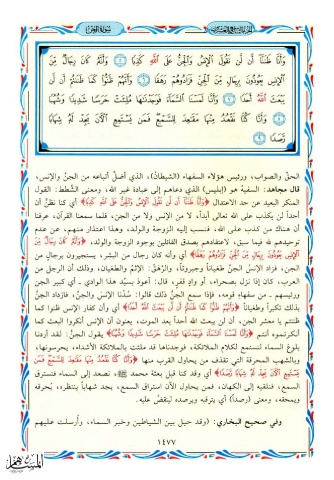 سورة الجن
﴿وَأَنَّا ظَنَنَّا أَن لَّن تَقُولَ الْإِنسُ وَالْجِنُّ عَلَى اللَّهِ كَذِبًا ۝ وَأَنَّهُ كَانَ رِجَالٌ مِّنَ
الْإِنسِ يَعُوذُونَ بِرِجَالٍ مِّنَ الْجِنِّ فَزَادُوهُمْ رَهَقًا ۝ وَأَنَّهُمْ ظَنُّوا كَمَا ظَنَنتُمْ أَن لَّن
يَبْعَثَ اللَّهُ أَحَدًا ۝ وَأَنَّا لَمَسْنَا السَّمَاءَ فَوَجَدْنَاهَا مُلِئَتْ حَرَسًا شَدِيدًا وَشُهُبًا
۝ وَأَنَّا كُنَّا نَقْعُدُ مِنْهَا مَقَاعِدَ لِلسَّمْعِ فَمَن يَسْتَمِعِ الْآنَ يَجِدْ لَهُ شِهَابًا
رَّصَدًا ۝﴾
الحقّ والصواب، ورئيس هؤلاء السفهاء (الشيطان)، الذي أضلّ أتباعه من الجنّ والإنس،
قال مجاهد: السفيهُ هو (إبليس) الذي دعاهم إلى عبادة غير الله، ومعنى الشَّطط: القول
المنكر البعيد عن حد الاعتدال ﴿وَأَنَّا ظَنَنَّا أَن لَّن تَقُولَ الْإِنسُ وَالْجِنُّ عَلَى اللَّهِ كَذِبًا﴾ أي كنا نظنُّ أن
أحداً لن يكذب على الله تعالى أبداً، لا من الإنس ولا من الجن، فلما سمعنا القرآن، عرفنا
أن هناك من كذب على الله، فنسب إليه الزوجة والولد، وهذا اعتذار منهم، عن عدم
توحيدهم لله فيما سبق، لاعتقادهم بصدق القائلين بوجود الزوجة والولد، ﴿وَأَنَّهُ كَانَ رِجَالٌ مِّنَ
الْإِنسِ يَعُوذُونَ بِرِجَالٍ مِّنَ الْجِنِّ فَزَادُوهُمْ رَهَقًا﴾ أي وأنه كان رجال من البشر، يستجيرون برجالٍ من
الجن، فزاد الإنسُ الجنَّ طغياناً وجبروتاً، والرَّهَقُ: الإثمُ والطغيان، وذلك أن الرجل من
العرب، كان إذا نزل بصحراء، أو وادٍ قفرٍ، قال: أعوذ بسيِّد هذا الوادي ـ أي كبير الجن
ورئيسهم ـ من سفهاءِ قومه، فإذا سمع الجنُّ ذلك قالوا: سُدْنا الإنسَ والجنَّ، فازداد الجنُّ
بذلك تكبراً وطغياناً ﴿وَأَنَّهُمْ ظَنُّوا كَمَا ظَنَنتُمْ أَن لَّن يَبْعَثَ اللَّهُ أَحَدًا﴾ أي وأن كفار الإنس ظنوا كما
ظننتم يا معشر الجن، أن لن يبعث الله أحداً بعد الموت، يعنون أن الإنس أنكروا البعث كما
أنكرتموه أنتم ﴿وَأَنَّا لَمَسْنَا السَّمَاءَ فَوَجَدْنَاهَا مُلِئَتْ حَرَسًا شَدِيدًا وَشُهُبًا﴾ يقول الجنُّ: لقد أردنا
بلوغ السماء لنستمع لكلام الملائكة، فوجدناها قد ملئت بالملائكة الأشداء، يحرسونها،
وبالشهب المحرقة التي تقذف من يحاول القرب منها ﴿وَأَنَّا كُنَّا نَقْعُدُ مِنْهَا مَقَاعِدَ لِلسَّمْعِ فَمَن
يَسْتَمِعِ الْآنَ يَجِدْ لَهُ شِهَابًا رَّصَدًا﴾ أي وقد كنا قبل بعثة محمد ﷺ، نصعد إلى السماء فنسترق
السمع، فنلقيه إلى الكهان، فمن يحاول الآن استراق السمع، يجد شهاباً ينتظره، يُحرقه
ويمحقه، ومعنى (رصداً) أي يترقبه ويرصده لينقضَّ عليه.
وفي صحيح البخاري: (وقد حيل بين الشياطين وخبر السماء، وأرسلت عليهم
١٤٧٧